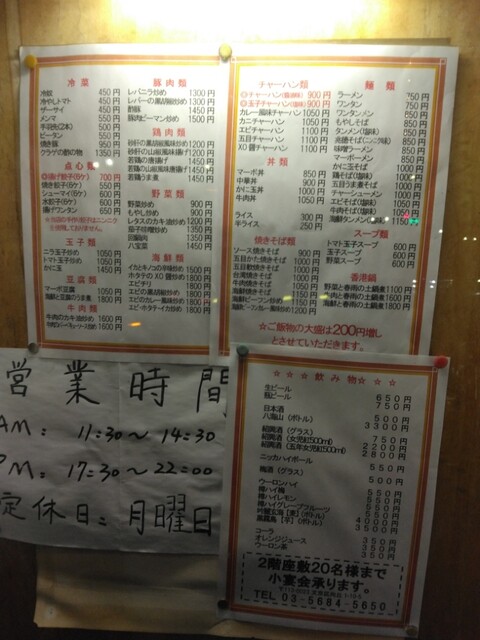 冷菜
冷奴 450円
冷やしトマト 450円
ザーサイ 450円
メンマ 550円
手羽先(2本) 500円
ピータン 500円
焼き豚 950円
クラゲの酢の物 1350円
点心類
◎揚げ餃子(6ケ) 700円
焼き餃子(6ケ) 550円
シューマイ(6ケ) 600円
水餃子(6ケ) 600円
揚げワンタン 650円
玉子類
ニラ玉子炒め 1050円
トマト玉子炒め 1050円
かに玉 1450円
豆腐類
マーボ豆腐 1050円
海鮮と豆腐のうま煮 1800円
牛肉類
牛肉のカキ油炒め 1600円
豚肉類
レバニラ炒め 1300円
レバーの黒胡椒炒め 1300円
酢豚 1450円
豚肉ピーマン炒め 1500円
鶏肉類
砂肝の黒胡椒風味炒め 1200円
砂肝の山椒風味揚げ 1200円
若鶏の唐揚げ 1450円
若鶏の山椒風味揚げ 1450円
若鶏うま煮 1450円
野菜類
野菜炒め 900円
もやし炒め 900円
レタスのカキ油炒め 1200円
茄子味噌炒め 1350円
回鍋肉 1350円
八宝菜 1450円
海鮮類
イカとキノコの冷菜炒め 1500円
ホタテのXO醤炒め 1600円
エビチリ 1800円
エビの黒胡椒炒め 1800円
エビのカレー風味炒め 1800円
エビ・ホタテ・イカ炒め 1800円
チャーハン類
◎チャーハン(醤油味) 900円
◎玉子チャーハン(塩味) 900円
カレー風味チャーハン 1050円
カニチャーハン 1050円
エビチャーハン 1100円
五目チャーハン 1100円
XO醤チャーハン 1100円
丼類
マーボ丼 850円
中華丼 900円
かに玉丼 1000円
牛肉丼 1050円
ライス 300円
半ライス 250円
焼きそば類
ソース焼きそば 900円
五目かた焼きそば
五目軟焼きそば
台湾焼きそば
牛肉焼きそば
海鮮焼きそば
海鮮ビーフン炒め
海鮮焼きそば(塩味) 1200円
麺類
ラーメン 750円
ワンタン 750円
ワンタンメン
もやしそば
タンメン(塩味)
味噌ラーメン
マーボーメン
かに玉そば
鶏そば(塩味)
五目うま煮そば
チャーシューメン
エビそば(塩味) 1050円
牛肉そば(塩味) 1050円
海鮮タンメン(塩味) 1150円
スープ類
トマト玉子スープ 600円
玉子スープ 600円
野菜スープ 600円
香港鍋
野菜と春雨の土鍋煮 1100円
牛肉と春雨の土鍋煮 1600円
海鮮と春雨の土鍋煮 1800円
☆ご飯物の大盛は200円増し
とさせていただきます。
営業時間
AM: 11:30〜14:30
PM: 17:30〜22:00
定休日: 月曜日
☆☆☆飲み物☆☆☆
生ビール 650円
瓶ビール 750円
日本酒 500円
八海山(ボトル) 3300円
紹興酒(グラス) 750円
紹興酒(女児紅500ml) 2200円
紹興酒(五年女児紅500ml) 2800円
ニッカハイボール 550円
梅酒(グラス) 550円
ウーロンハイ 500円
樽ハイ梅 550円
樽ハイレモン 550円
樽ハイグレープフルーツ 550円
吟麗玄海【麦】(ボトル) 4000円
黒霧島【芋】(ボトル) 3500円
コーラ 350円
オレンジジュース 350円
ウーロン茶 350円
2階座敷20名様まで
小宴会承ります。
TEL 03-5684-5650